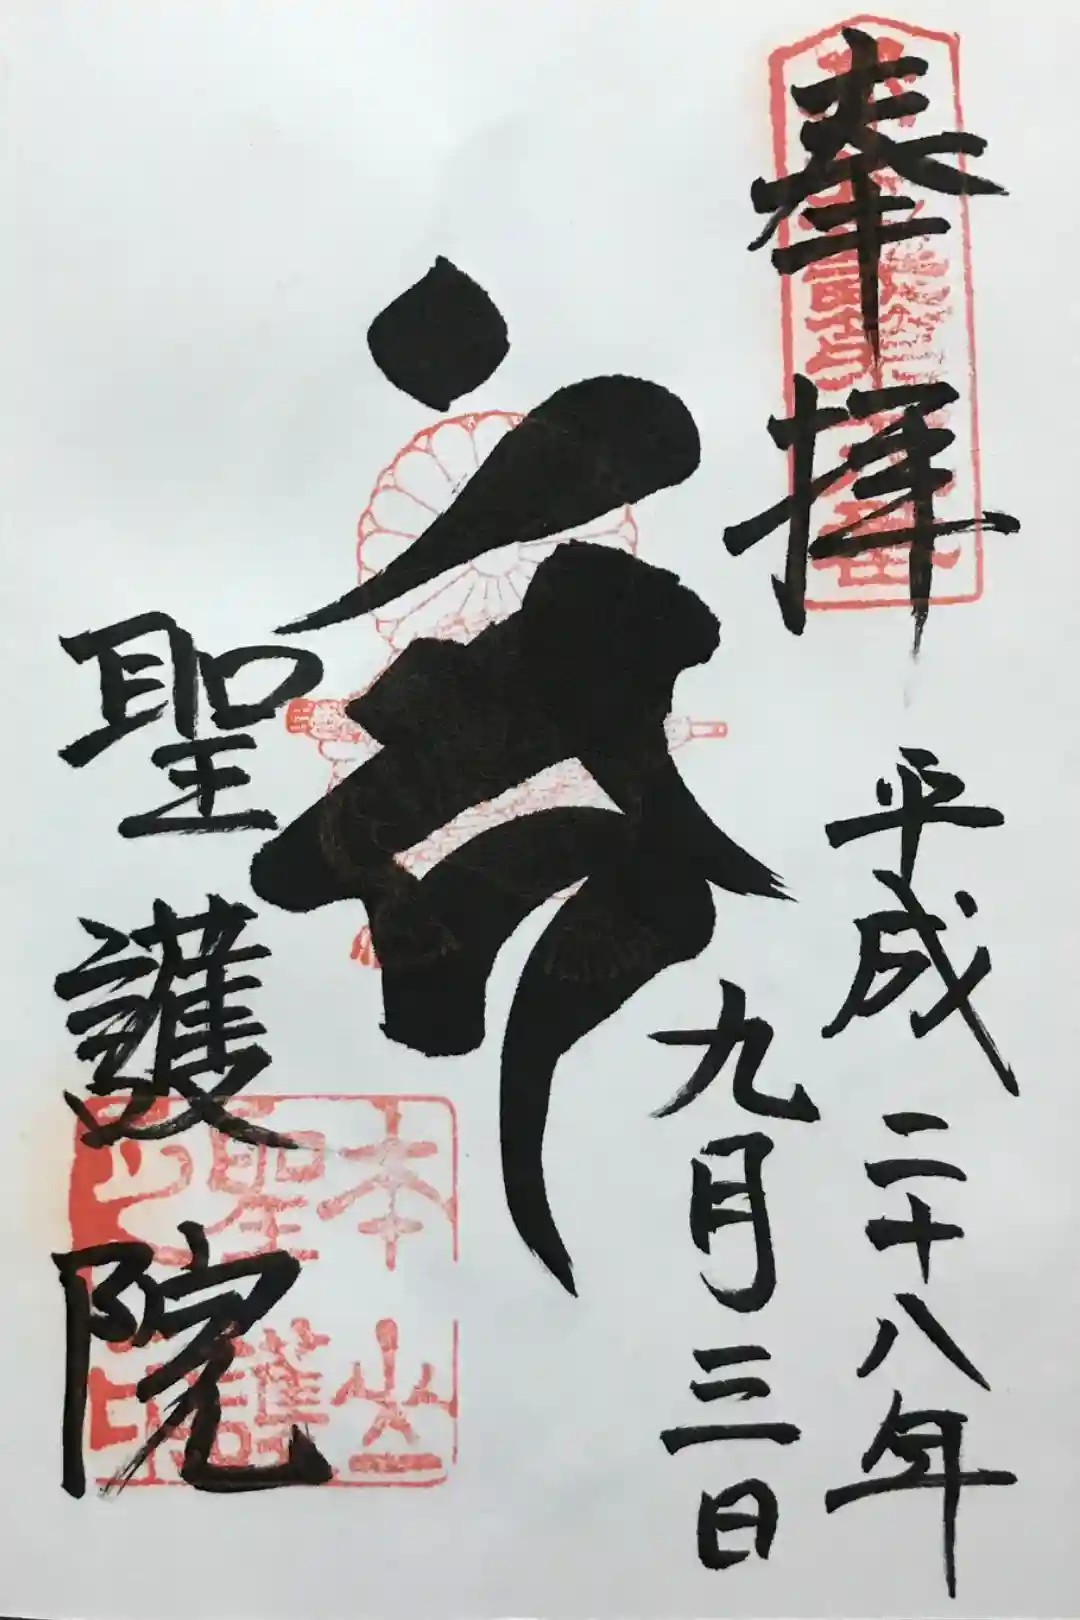 奉拝
平成二十八年
九月三日
聖護院
本山
聖護